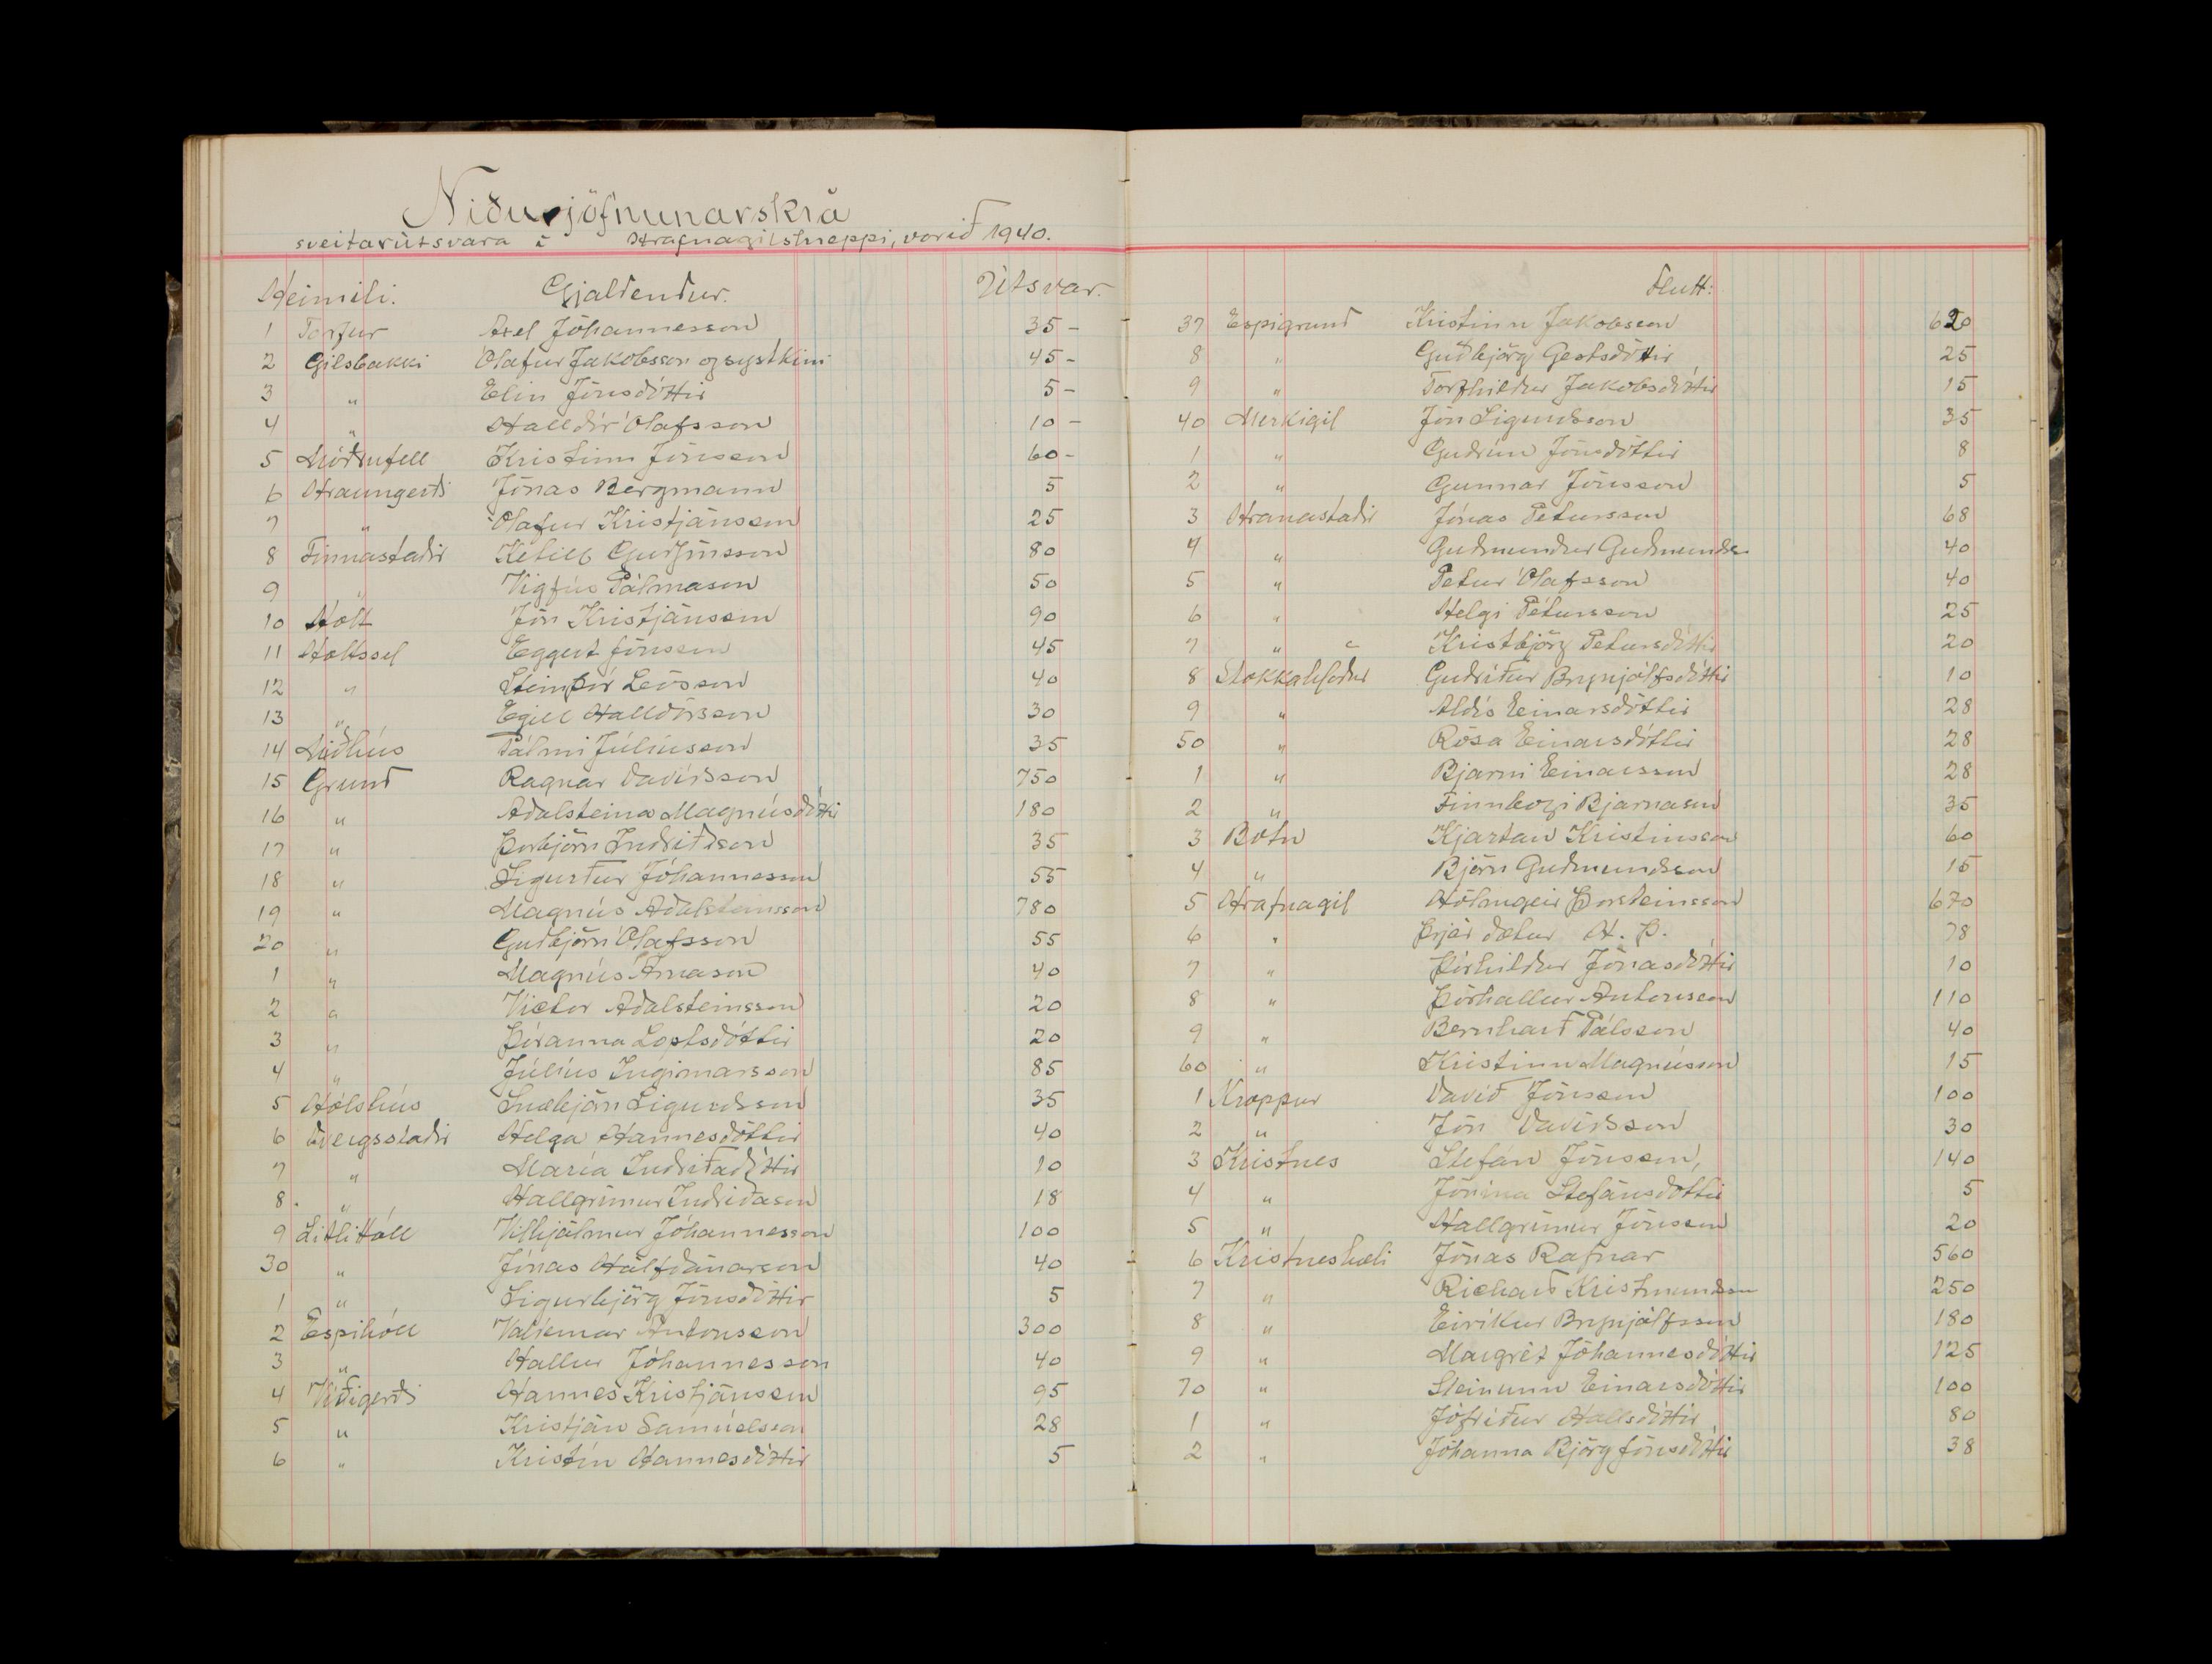 Niðurjöfnunarskrá
sveitarútsvara í Hrafnagilshreppi, vorið 1940.
Heimili. Gjaldendur. Útsvar.
1 Torfur Axel Jóhannesson 35 -
2 Gilsbakki Ólafur Jakobsson og systkini 45 -
3 " Elin Jónsdóttir 5 -
4 " Halldór Ólafsson 10 -
5 Möðrufell Kristinn Jónsson 60 -
6 Hraungerði Jónas Bergmann 5
7 " Ólafur Kristjánsson 25
8 Finnastaðir Ketill Guðjónsson 80
9 " Vigfús Pálmason 50
10 Holt Jón Kristjánsson 90
11 Holtssel Eggert Jónsson 45
12 " Steinþór Leósson 40
13 " Egill Halldórsson 30
14 Miðhús Pálmi Júlíusson 35
15 Grund Ragnar Davíðsson 750
16 " Aðalsteina Magnúsdóttir 180
17 " Þorbjörn Indriðason 35
18 " Sigurður Jóhannesson 55
19 " Magnús Aðalsteinsson 780
20 " Guðbjörn Ólafsson 55
1 " Magnús Árnason 40
2 " Victor Aðalsteinsson 20
3 " Þóranna Loptsdóttir 20
4 " Júlíus Ingimarsson 85
5 Hólshús Snæbjörn Sigurðsson 35
6 Dvergsstaðir Helga Hannesdóttir 40
7 " María Indriðadóttir 10
8 " Hallgrímur Indriðason 18
9 Litli Hóll Vilhjálmur Jóhannesson 100
30 " Jónas Hálfdánarson 40
1 " Sigurbjörg Jónsdóttir 5
2 Espihóll Valdemar Antonsson 300
3 " Hallur Jóhannesson 40
4 Víðigerði Hannes Kristjánsson 95
5 " Kristján Samúelsson 28
6 " Kristín Hannesdóttir 5
Flutt:
37 Espigrund Kristinn Jakobsson 620
8 " Guðbjörg Gestsdóttir 25
9 " Torfhildur Jakobsdóttir 15
40 Merkigil Jón Sigurðsson 35
1 " Guðrún Jónsdóttir 8
2 " Gunnar Jónsson 5
3 Hranastaðir Jónas Petursson 68
4 " Guðmundur Guðmunds. 40
5 " Petur Ólafsson 40
6 " Helgi Pétursson 25
7 " Kristbjörg Petursdóttir 20
8 Stokkahlaðir Guðríður Brynjólfsdóttir 10
9 " Aldís Einarsdóttir 28
50 " Rósa Einarsdóttir 28
1 " Bjarni Einarsson 28
2 " Finnbogi Bjarnason 35
3 Botn Kjartan Kristinsson 60
4 " Björn Guðmundsson 15
5 Hrafnagil Hólmgeir Þorsteinsson 670
6 " Þrjár dætur H. Þ. 78
7 " Þórhildur Jónasdóttir 10
8 " Þórhallur Antonsson 110
9 " Bernharð Pálsson 40
60 " Kristinn Magnússon 15
1 Kroppur Davíð Jónsson 100
2 " Jón Davíðsson 30
3 Kristnes Stefán Jónsson, 140
4 " Jónína Stefánsdóttir 5
5 " Hallgrímur Jónsson 20
6 Kristneshæli Jónas Rafnar 560
7 " Richard Kristmundsson 250
8 " Eiríkur Brynjólfsson 180
9 " Margrét Jóhannesdóttir 125
70 " Steinunn Einarsdóttir 100
1 " Jófríður Hallsdóttir 80
2 " Jóhanna Björg Jónsdóttir 38